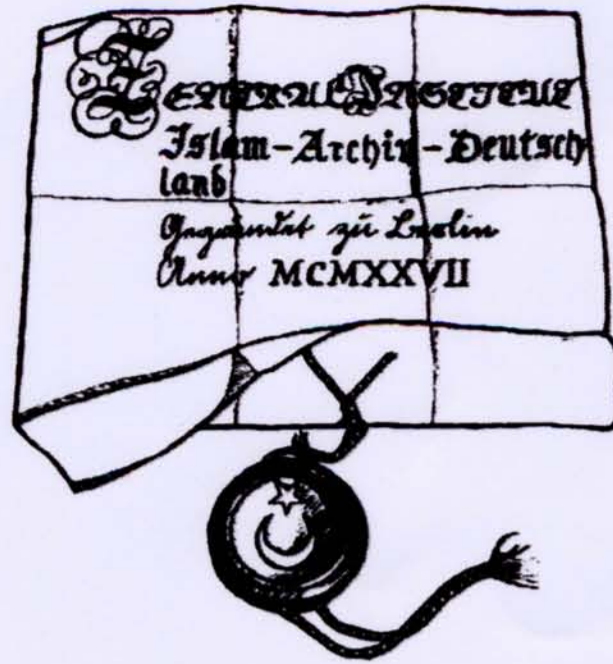 ZENTRAL INSTITUT
Islam-Archiv-Deutsch
land
Gegründet zu Berlin
Anno MCMXXVII